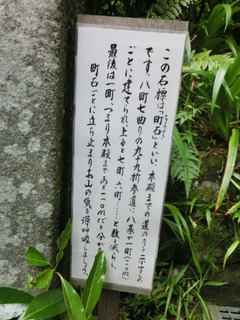 この石標は「町石」といい、本殿までの道のりを示すもの
です。八町七曲りの九十九折参道に八基が一町(一一〇m)
ごとに建てられ、上ると七町、六町……と数を減らし、
最後は一町、つまり本殿まであと一一〇mだと分かる
町石ごとに立ち止まりお山の気を深呼吸しましょう。